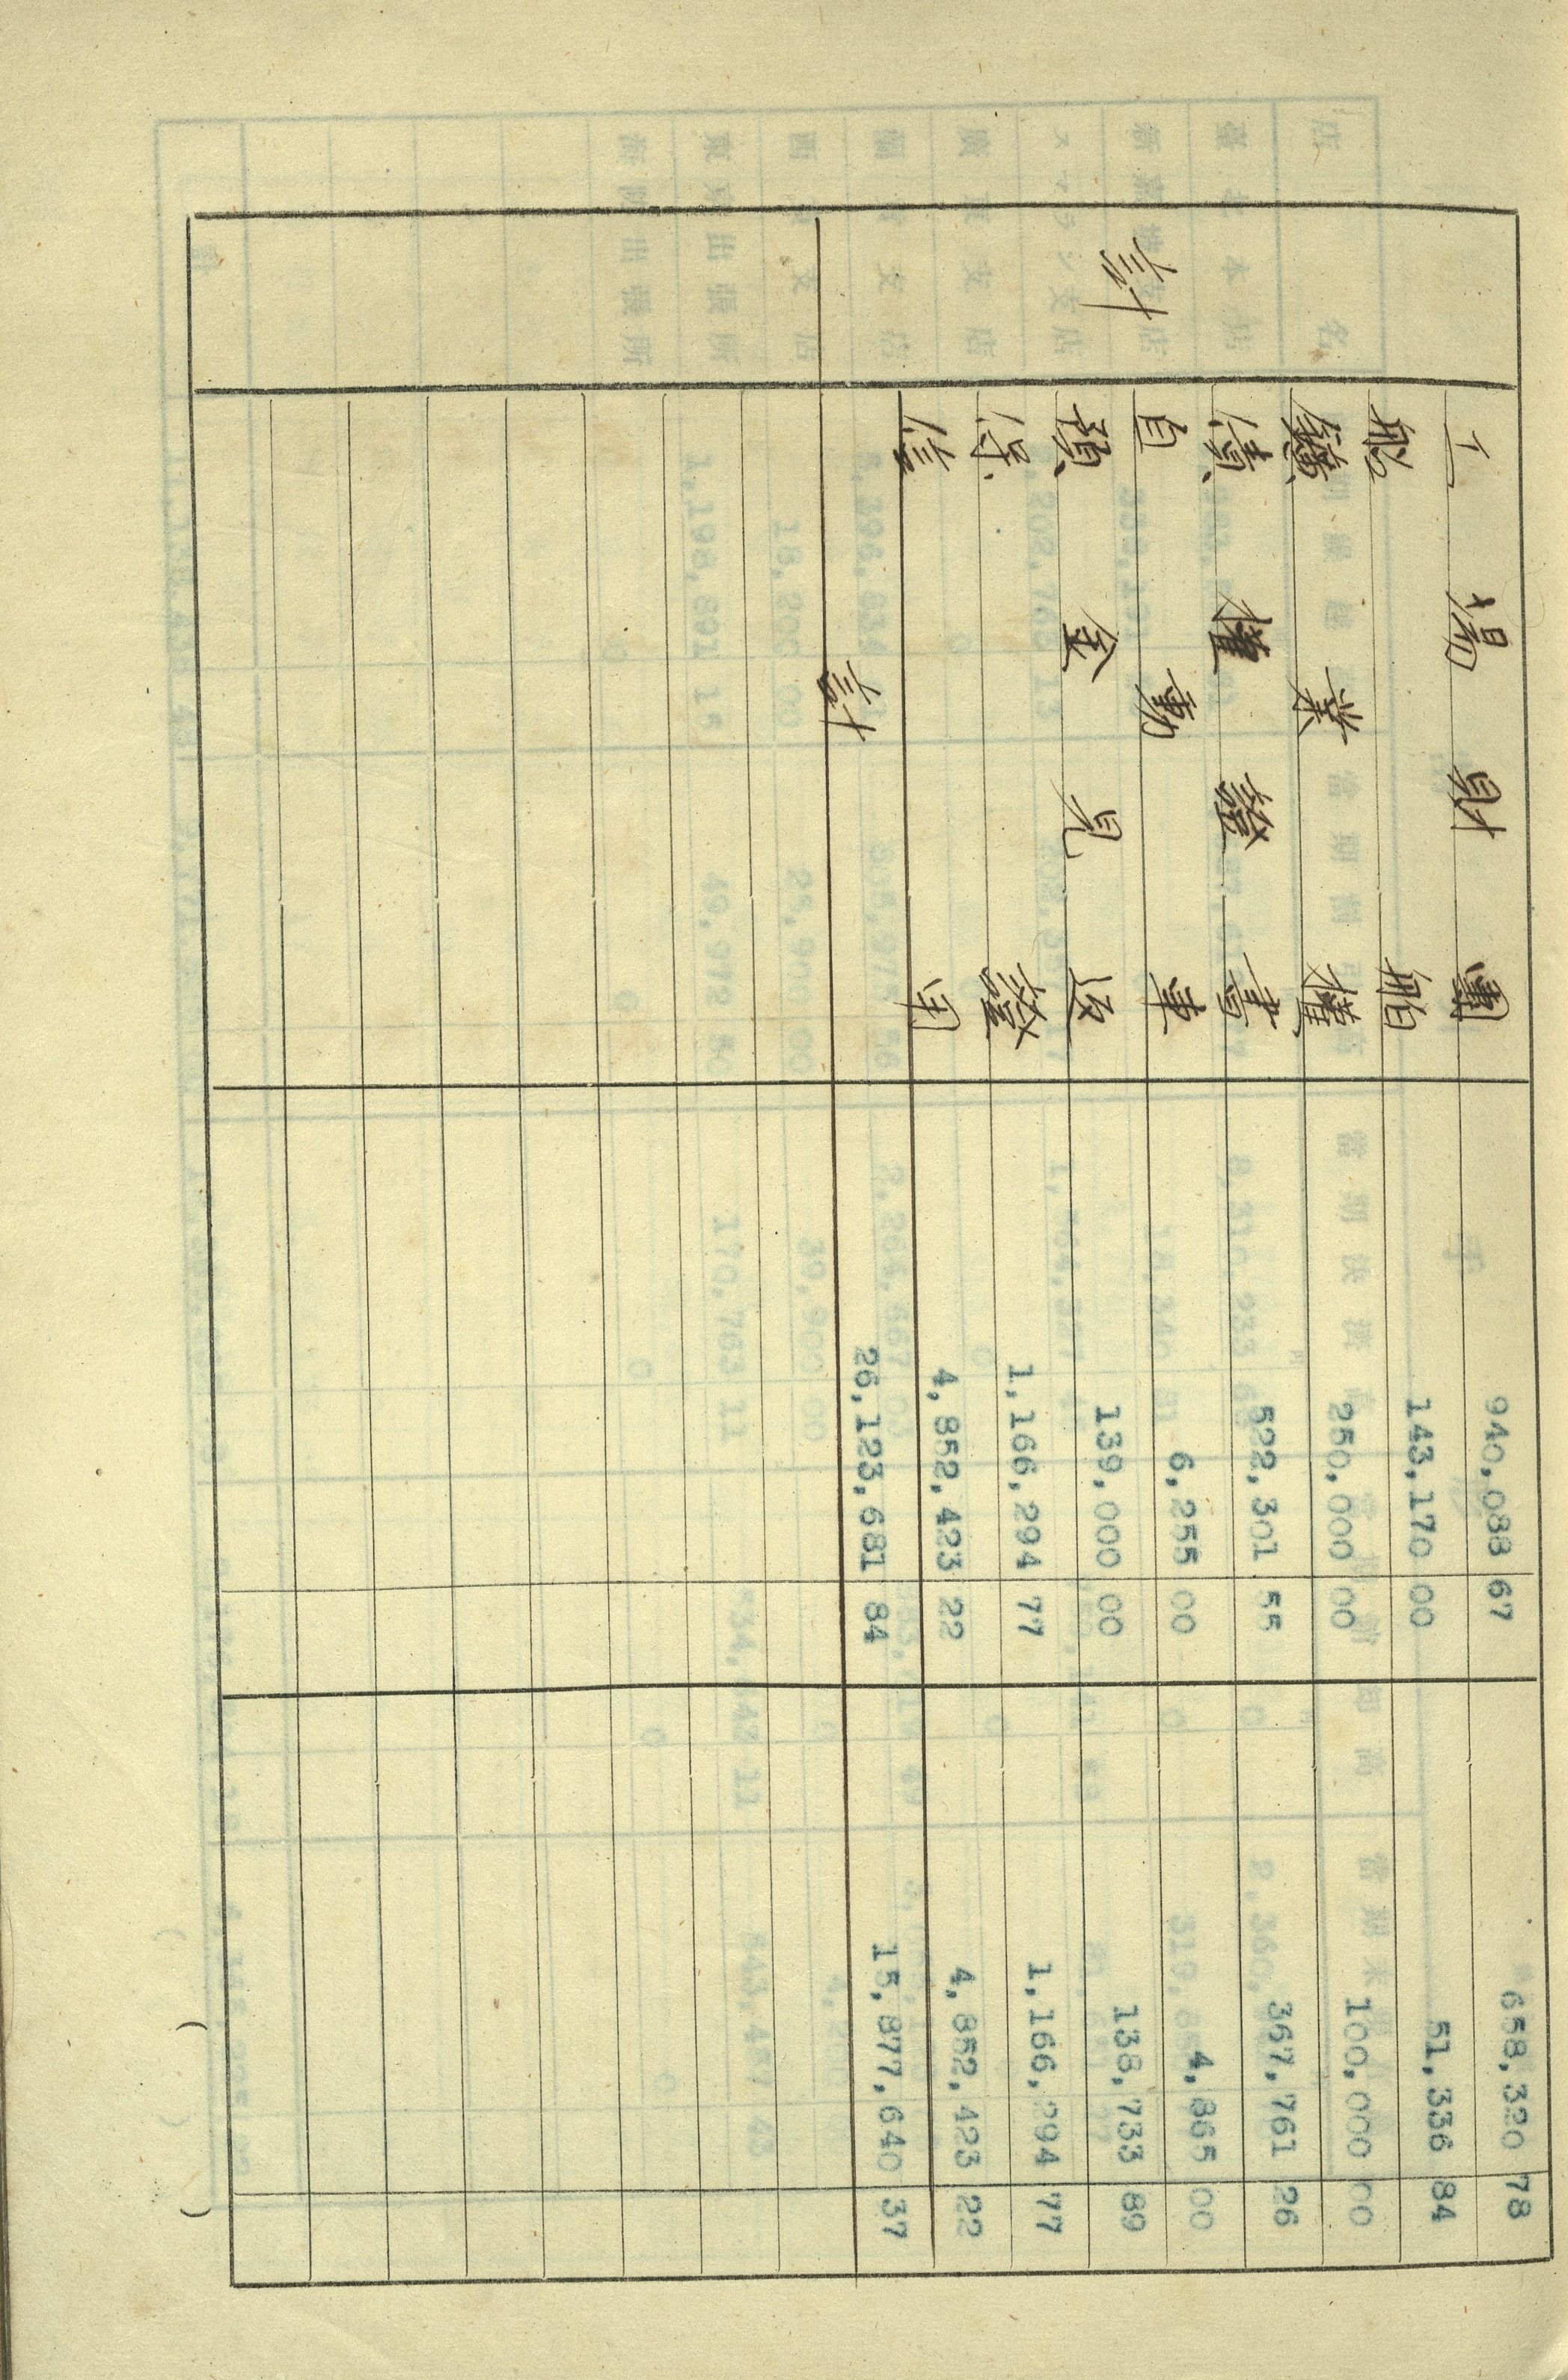 計
工場財團 940,088 67 658,320 78
船舶 143,170 00 51,336 84
鑛業權 250,000 00 100,000 00
債權證書 522,301 55 367,761 26
自動車 6,255 00 4,865 00
預金見返 139,000 00 138,733 89
保證 1,166,294 77 1,166,294 77
信用 4,852,423 22 4,852,423 22
計 26,123,681 84 15,877,640 37
( )